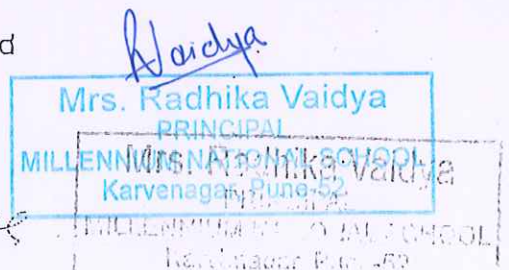 d
RVaidya
Mrs. Radhika Vaidya
PRINCIPAL
MILLENNIUM NATIONAL SCHOOL
Karvenagar, Pune-52
Mrs. Radhika Vaidya
PRINCIPAL
MILLENNIUM NATIONAL SCHOOL
Karvenagar, Pune-52